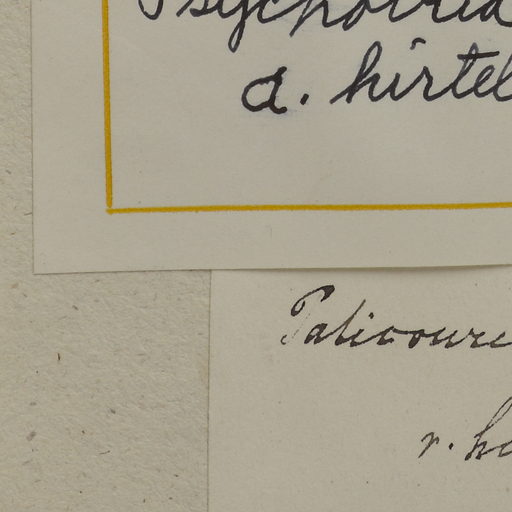 Psychotria
a. hirtel
Palicoure
r. h